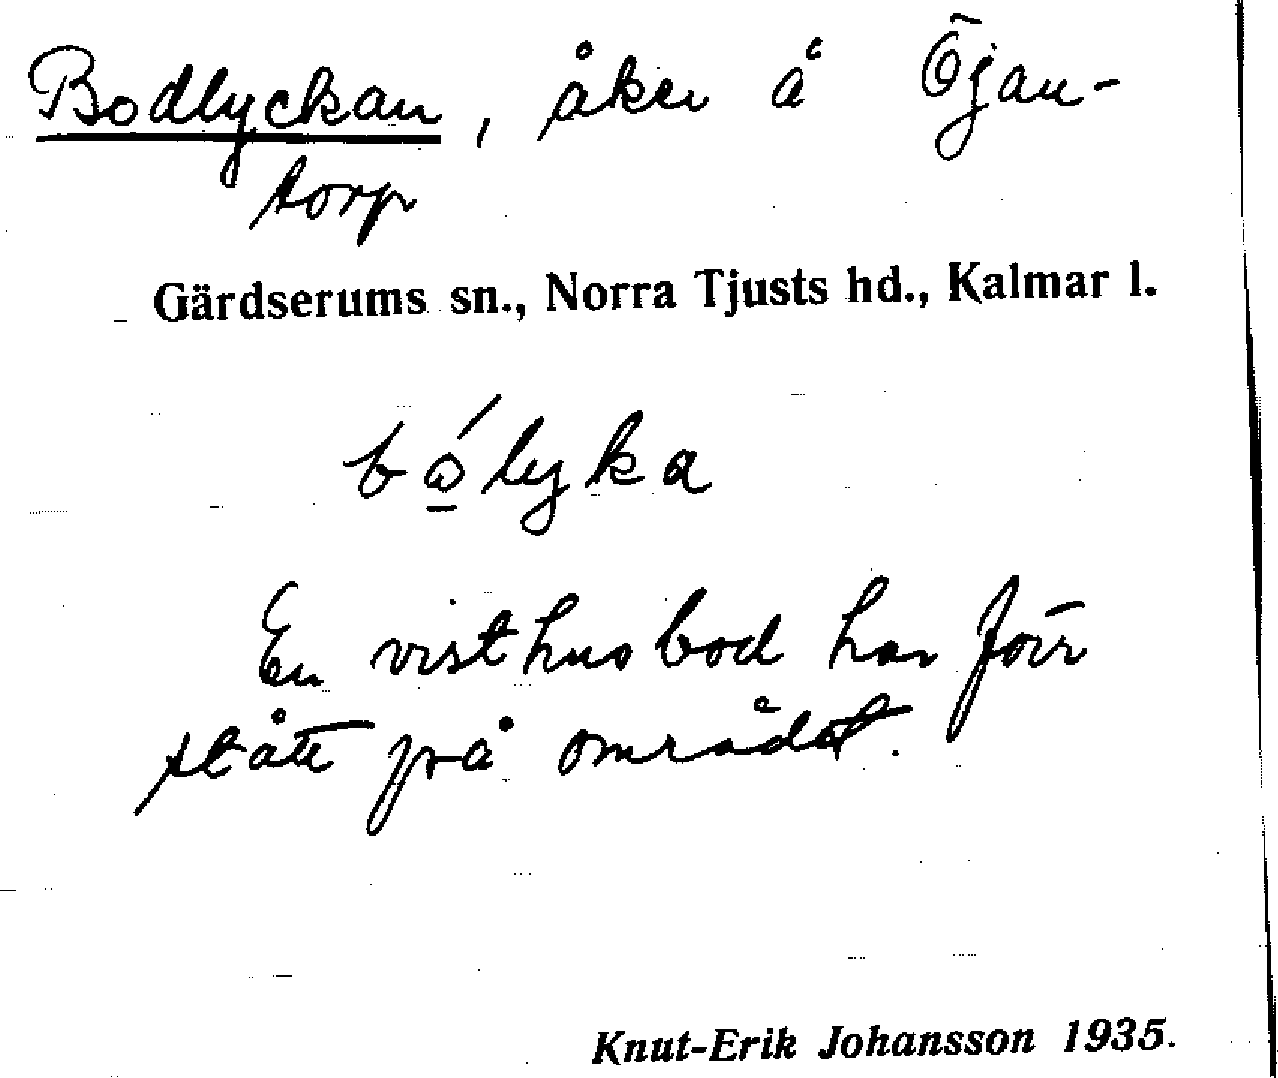 Bodlyckan, åker å Öjan-
torp
Gärdserums sn., Norra Tjusts hd., Kalmar l.
bó̱lyka
En visthusbod har förr
stått på området.
Knut-Erik Johansson 1935.